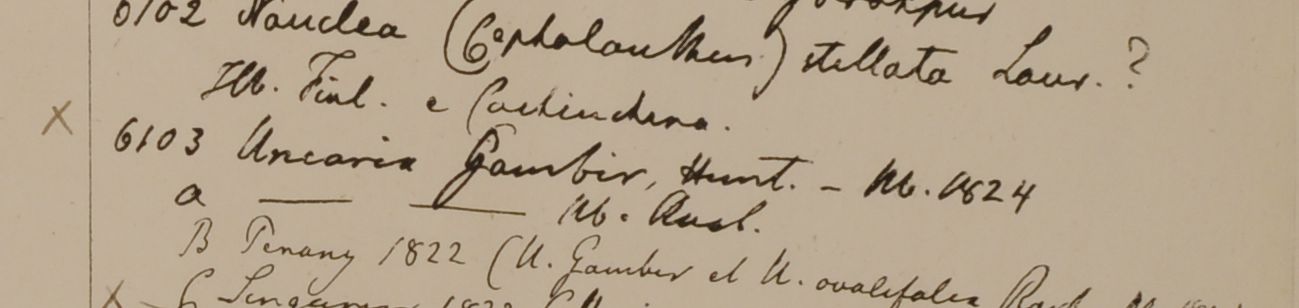 6102 Nauclea (Cephalanthus) stellata Lour. ?
Hb. Finl. e Cochinchina.
X 6103 Uncaria Gambir, Hunt. - Hb. 1824
a — — Hb. Roxb.
B Penang 1822 (U. Gambir et U. ovalifolia Roxb.
X - C Singapore 1822